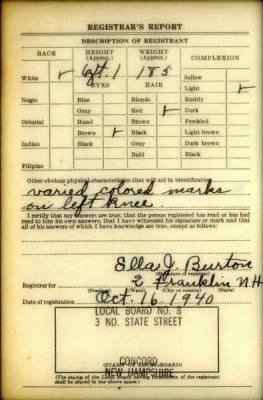 REGISTRAR'S REPORT
DESCRIPTION OF REGISTRANT
RACE HEIGHT (Approx.) WEIGHT (Approx.) COMPLEXION
White ✓ 6ft. 1 185 Sallow
EYES HAIR Light ✓
Negro Blue Blonde Ruddy
Gray Red ✓ Dark
Oriental Hazel Brown Freckled
Brown ✓ Black Light brown
Indian Black Gray Dark brown
Bald Black
Filipino
Other obvious physical characteristics that will aid in identification
varied colored marks
on left knee.
I certify that my answers are true; that the person registered has read or has had
read to him his own answers; that I have witnessed his signature or mark and that
all of his answers of which I have knowledge are true, except as follows:
Ella J. Burton
(Signature of registrar)
Registrar for 2 Franklin N.H.
(Ward) (City or county)
Date of registration Oct. 16, 1940
LOCAL BOARD NO. 8
3 NO. STATE STREET
CONCORD
NEW HAMPSHIRE
(STAMP OF LOCAL BOARD)
(The stamp of the Local Board having jurisdiction of the registrant
shall be placed in the above space.)